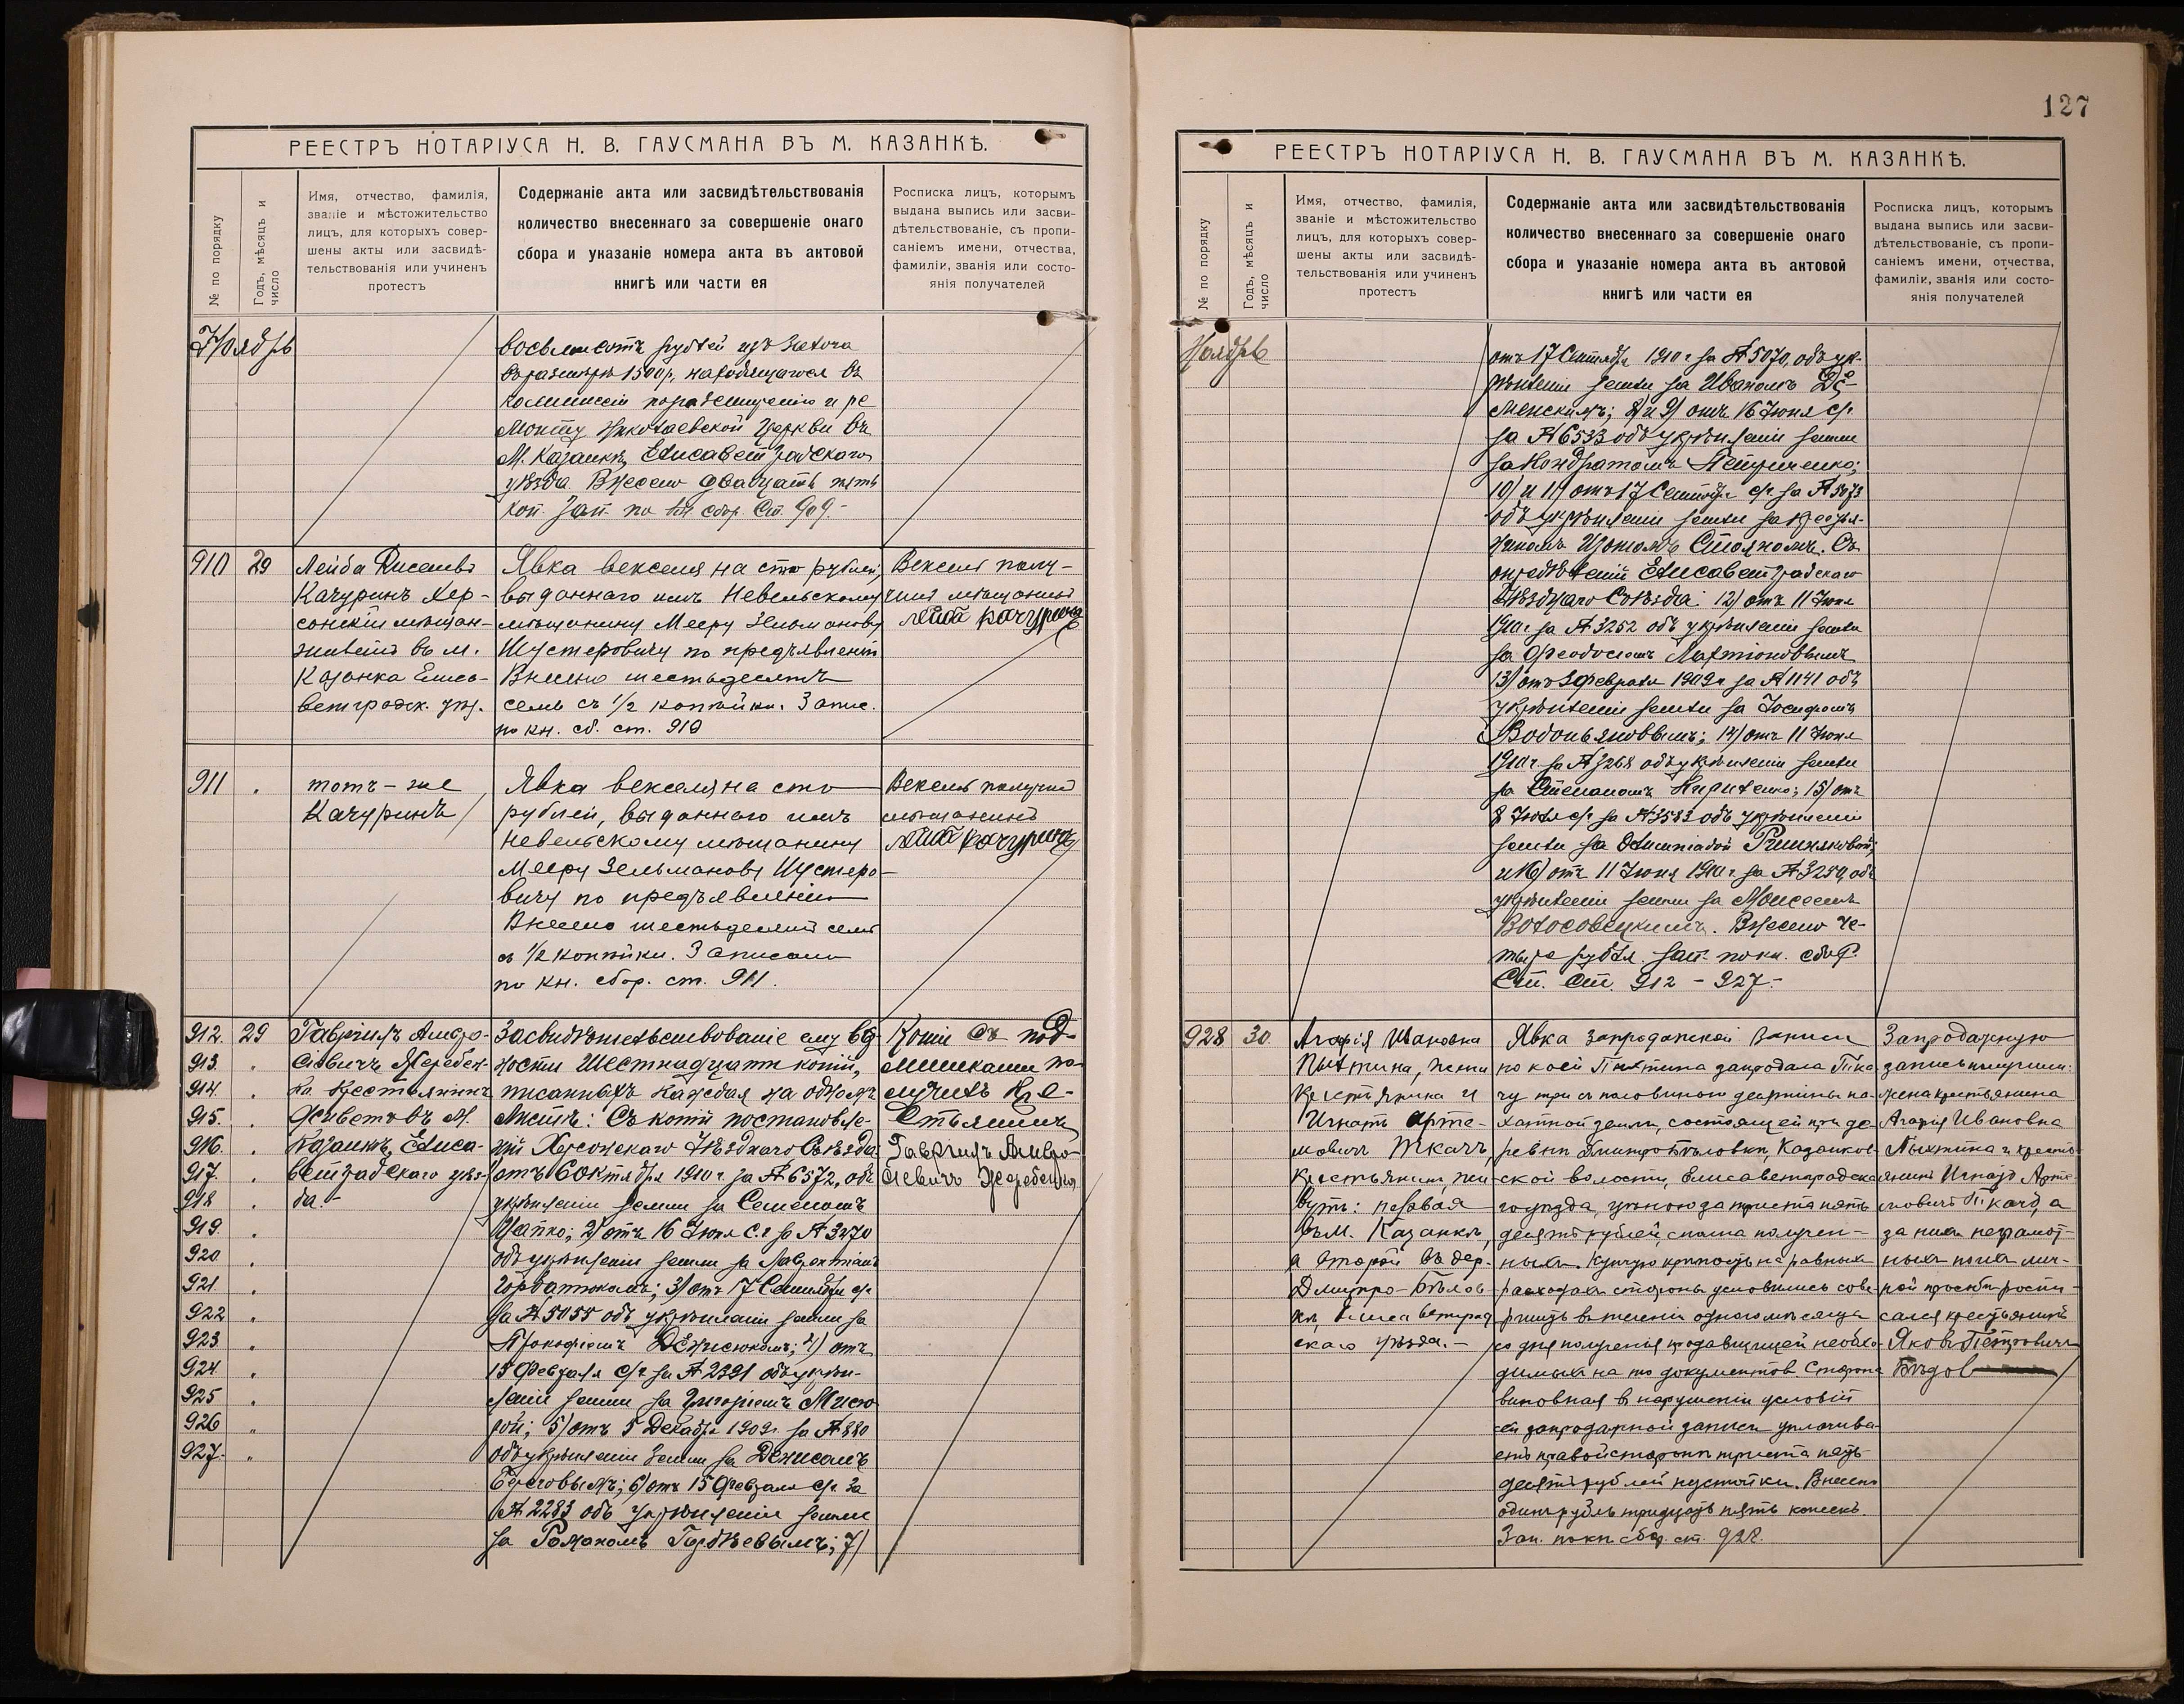 127
РЕЕСТРЪ НОТАРІУСА Н. В. ГАУСМАНА ВЪ М. КАЗАНКѢ.
№ по порядку
Годъ, мѣсяцъ и
число
Имя, отчество, фамилія,
званіе и мѣстожительство
лицъ, для которыхъ совер-
шены акты или засвидѣ-
тельствованія или учиненъ
протестъ
Содержаніе акта или засвидѣтельствованія
количество внесеннаго за совершеніе онаго
сбора и указаніе номера акта въ актовой
книгѣ или части ея
Росписка лицъ, которымъ
выдана выпись или засви-
дѣтельствованіе, съ пропи-
саніемъ имени, отчества,
фамиліи, званія или состо-
янія получателей
Ноябрь
восьмисотъ рублей изъ залога
въ размѣрѣ 1500 р, находящагося въ
коммиссіи по размещенію и ре
монту Николаевской Церкви въ
М. Казанкѣ, Елисаветградскаго
уѣзда. Внесено двадцать пять
коп. Зап. по кн. сбор. Ст. 909.-
910 29
Лейба
Качуринъ Хер-
сонскій мѣщан-
живетъ въ м.
Казанка Елиса-
ветградск. уѣз.
Явка векселя на сто рублей,
выданнаго имъ Невельскому
мѣщанину Мееру Зельманову
Шустеровичу по предъявленіи
Внесено шестьдесятъ
семь съ 1/2 копѣйки. Запис.
по кн. сб. ст. 910
Вексель полу-
чилъ мѣщанинъ
Лейба Качуринъ
911 "
тотъ-же
Качуринъ
Явка векселя на сто
рублей, выданнаго имъ
Невельскому мѣщанину
Мееру Зельманову Шустеро-
вичу по предъявленіи
Внесено шестьдесятъ семь
съ 1/2 копѣйки. Записано
по кн. сбор. ст. 911.
Вексель получилъ
мѣщанинъ
Лейба Качуринъ
912. 29
913. "
914. "
915. "
916. "
917. "
918 "
919. "
920 "
921. "
922 "
923. "
924. "
925 "
926 "
927. "
Гавріилъ Амвро-
сіевичъ Жеребен-
ко Крестьянинъ
Живетъ въ М.
Казанкѣ, Елиса-
ветградскаго уѣз-
да.-
Засвидѣтельствованіе ему вѣр-
ности Шестнадцати копій,
писанныхъ каждая на одномъ
листѣ: Съ копій постановле-
ній Херсонскаго Уѣзднаго Съѣзда:
отъ 6 Октября 1910 г. за № 6372, объ
укрѣпленіи земли за Семеномъ
Цапко; 2) отъ 16 Іюня с.г за № 3270
объ укрѣпленіи земли за Лаврентіемъ
Горбатюкомъ; 3) отъ 17 Сентября с/г
за № 5055 объ укрѣпленіи земли за
Прокофіемъ Денисюкомъ; 4) отъ
15 Февраля с/г за № 2291 объ укрѣп-
леніи земли за Григоріемъ
5) отъ 5 Декабря 1909 г. за № 880
объ укрѣпленіи земли за Денисомъ
Береговымъ; 6) отъ 15 Февраля с/г. за
№ 2283 объ укрѣпленіи земли
за Романомъ Гордѣевымъ; 7)
Копіи съ под-
линниками по-
лучилъ Кре-
стьянинъ
Гавріилъ Амвро-
сіевичъ Жеребенко
РЕЕСТРЪ НОТАРІУСА Н. В. ГАУСМАНА ВЪ М. КАЗАНКѢ.
№ по порядку
Годъ, мѣсяцъ и
число
Имя, отчество, фамилія,
званіе и мѣстожительство
лицъ, для которыхъ совер-
шены акты или засвидѣ-
тельствованія или учиненъ
протестъ
Содержаніе акта или засвидѣтельствованія
количество внесеннаго за совершеніе онаго
сбора и указаніе номера акта въ актовой
книгѣ или части ея
Росписка лицъ, которымъ
выдана выпись или засви-
дѣтельствованіе, съ пропи-
саніемъ имени, отчества,
фамиліи, званія или состо-
янія получателей
Ноябрь
отъ 17 Сентября 1910 г за № 5070, объ ук-
рѣпленіи земли за Иваномъ
менскимъ; 8) и 9) отъ 16 Іюня с/г.
за № 6533 объ укрѣпленіи земли
за Кондратомъ Петриченко;
10) и 11) отъ 17 Сентября с/г. за № 5073
объ укрѣпленіи земли за Крестья-
ниномъ Стояномъ. Съ
опредѣленій Елисаветградскаго
Уѣзднаго Съѣзда: 12) отъ 11 Іюня
1910 г. за № 3252 объ укрѣпленіи земли
за Феодосіемъ Ларіоновымъ
13) отъ 3 Февраля 1909 г за № 1141 объ
укрѣпленіи земли за Іосифомъ
Водопьяновымъ; 14) отъ 11 Іюня
1910 г. за № 3268 объ укрѣпленіи земли
за Степаномъ Кириленко; 15) отъ
8 Іюля с/г. за № 3583 объ укрѣпленіи
земли за Олимпіадой
и 16) отъ 11 Іюня 1910 г за № 3259, объ
укрѣпленіи земли за Моисеемъ
Волосовецкимъ. Внесено че-
тыре рубля. Зап. по кн. сбор.
Ст. Ст. 912 - 927.-
928 30
Агафія Ивановна
Пыхтина, жена
Крестьянина и
Игнатъ Арте-
мовичъ Ткачъ,
Крестьянинъ, жи-
вутъ: первая
въ М. Казанкѣ,
а второй въ дер.
Дмитро-Бѣлов-
кѣ, Елисаветград
скаго уѣзда.-
Явка запродажной записи
по коей Пыхтина запродала Тка-
чу три съ половиною десятины па-
хатной земли, состоящей при де-
ревни Дмитро-Бѣловки, Казанков-
ской волости, Елисаветградска-
го уѣзда, цѣною за триста пять
десятъ рублей, сполна получен-
ныхъ. Купчую крѣпость на равныхъ
расходахъ стороны условились сове-
ршить въ теченіи одного мѣсяца
со дня полученія продавщицей необхо-
димыхъ на то документовъ. Сторона
виновная в нарушеніи условій
сей запродажной записи уплачива-
етъ правой сторонѣ триста пять
десятъ рублей неустойки. Внесено
одинъ рубль тридцать пять копеекъ.
Зап. по кн. сбор. ст. 928.
Запродажную
запись получили:
жена крестьянина
Агафія Ивановна
Пыхтина и крестья
янинъ Игнатъ Арте-
мовичъ Ткачъ, а
за нихъ неграмот-
ныхъ по ихъ лич-
ной просьбѣ роспи-
сался крестьянинъ
Яковъ Петровичъ